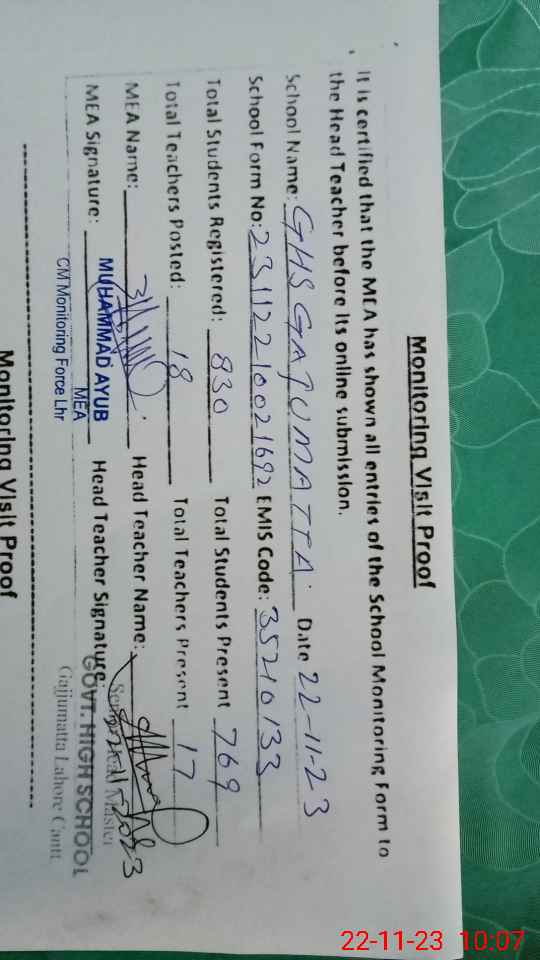 Monitoring Visit Proof
It is certified that the MEA has shown all entries of the School Monitoring Form to
the Head Teacher before its online submission.
School Name: GHS GAJUMATTA. Date 22-11-23
School Form No: 23112210021692 EMIS Code: 35210133
Total Students Registered: 830 Total Students Present 769
Total Teachers Posted: 18 Total Teachers Present 17
MEA Name: Head Teacher Name:
MUHAMMAD AYUB
MEA Signature: Head Teacher Signature:
MEA
CM Monitoring Force Lhr
Master
GOVT. HIGH SCHOOL
Gajjumatta Lahore Cantt.
Monitoring Visit Proof
22-11-23 10:07